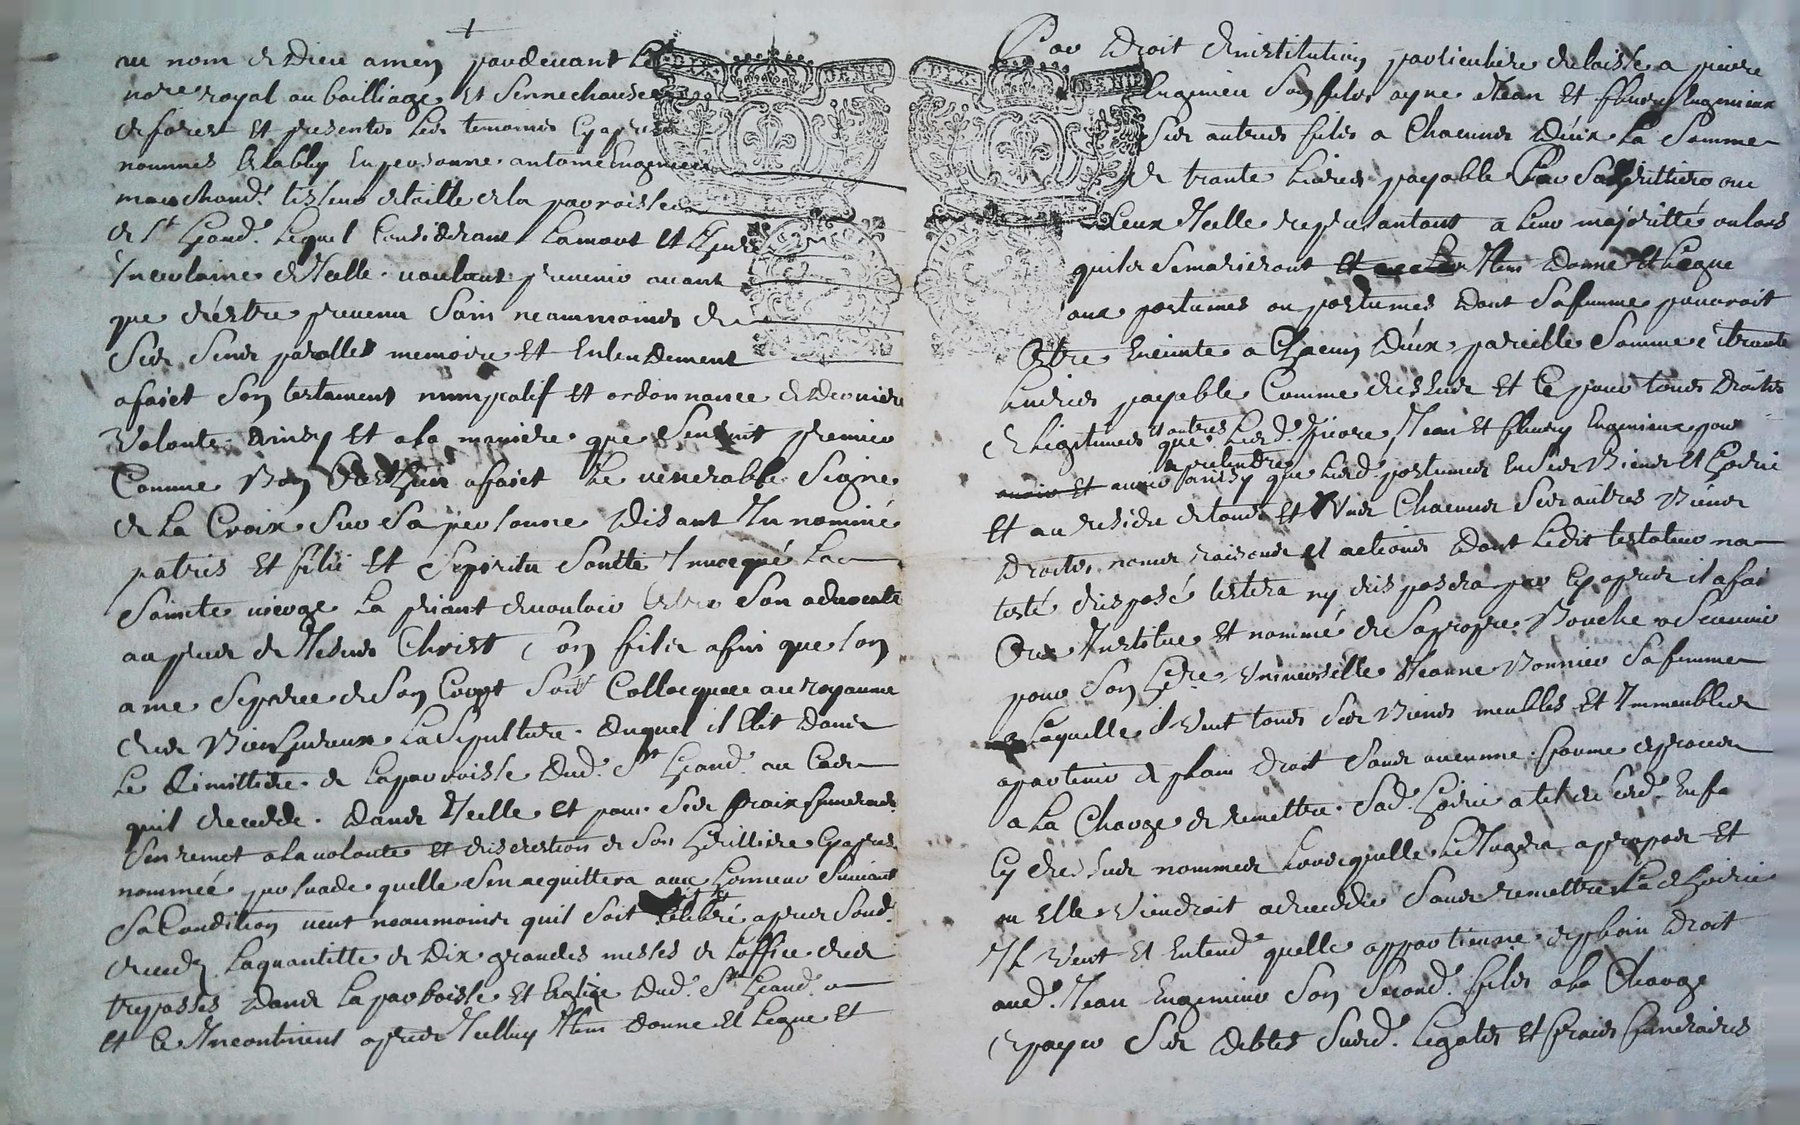 au nom de Dieu amen pardevant le
nore royal au bailliage et sennechausee
de forest et presentes les temoins cy apres
nommes estably en personne antoine Enginieu
marchand tisseur de taille de la parroisse
de St hand lequel considerant la mort et lheure
incertaine dicelle voulant prevenir avant
que destre prevenu sain neammoings de
ses sens parolles memoire et entendement
a faict son testament nuncupatif et ordonnance de derniere
volonté ainsy et a la maniere que sensuit premier
comme bon chrestien a faict le venerable signe
de la croix sur sa personne disant In nominé
patris et filii et spiritu sancti Invocqué la
saincte vierge la priant de vouloir estre son advocate
au pres de Jesus Christ son fils afin que son
ame separee de son corps soit collocquee au royaume
des bienheureux la sepulture duquel il elit dans
le cimittiere de la parroisse dud. St hand. au cas
quil decedde dans icelle et pour ses fraix funeraires
sen remet a la volonte et discrestion de son heritiere cy apres
nommeé persuade quelle sen acquittera avec honneur suivant
sa condition veut neaumoins quil soit celebré apres sond.
decedz la quantitte de dix grandes messes de loffice des
trepasses dans la parroisse et Eglize dud. St hand.
et ce Incontinent apres icelluy Item donne et legue et
par droit dinstitution particuliere delaisse a pierre
Enginieu son fils ayne Jean et fleury Enginieux
ses autres fils a chacuns deux la somme
de trante livres payable par sad. heritiere ou
ceux delle represantant a leur majorité ou lors
quils se marieront et Item donne et legue
aux postumes ou postumes dont sa femme pourroit
estre enceinte a chacun deux pareille somme de trante
livres payable comme dessus et ce pour tous droits
de legitimes et autres que lesd. pierre Jean et fleury Enginieux pour
avoir et avoir a pretendre aussy que lesd. postumes en ses biens et hoirie
et au residu de tous et uns chacuns ses autres biens
droits noms raisons et actions dont ledit testateur na
testé disposé testera ny disposera par cy apres il a fait
cree Institue et nommé de sa propre bouche
pour son here universelle Jeanne bonnier sa femme
a laquelle il veut tous ses biens meubles et Immeubles
apartenir de plain droit sans aucunne forme de proces
a la charge de remettre sad. hoirie a tel de sesd. Enfs
cy dessus nommes lors quelle le Jugera apropos et
ou elle viendroit a decedder sans remettre lad. hoirie
Il veut et Entend quelle appartienne de plain droit
aud. Jean Enginieu son second. fils a la charge
de payer ses debtes susd. legats et frais funeraires